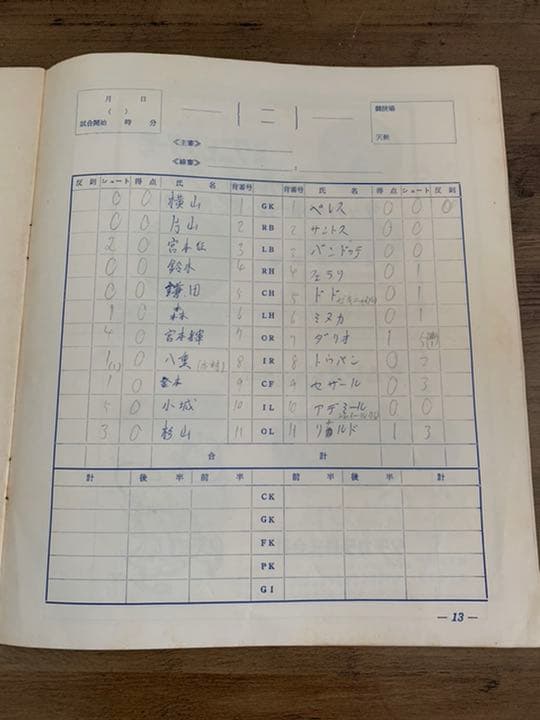 月 日
( )
試合開始 時 分
競技場
天候
≪主審≫
≪線審≫ :
反則 シュート 得点 氏 名 背番号 背番号 氏 名 得点 シュート 反則
0 0 横山 1 GK 1 ペレス 0 0 0
0 0 片山 2 RB 2 サントス 0 0
2 0 宮本征 3 LB 3 0 0
0 0 鈴木 4 RH 4 フェラリ 0 1
0 0 鎌田 5 CH 5 ドド 0 1
1 0 森 6 LH 6 ミヌカ 0 1
4 0 宮本輝 7 OR 7 ダリオ 1
1(1) 0 八重 8 IR 8 トゥパン 0 2
1 0 9 CF 9 セザール 0 3
5 0 小城 10 IL 10 アデミール 0 0
3 0 杉山 11 OL 11 リナルド 1 3
合 計
計 後 半 前 半 前 半 後 半 計
CK
GK
FK
PK
GI
— 13 —